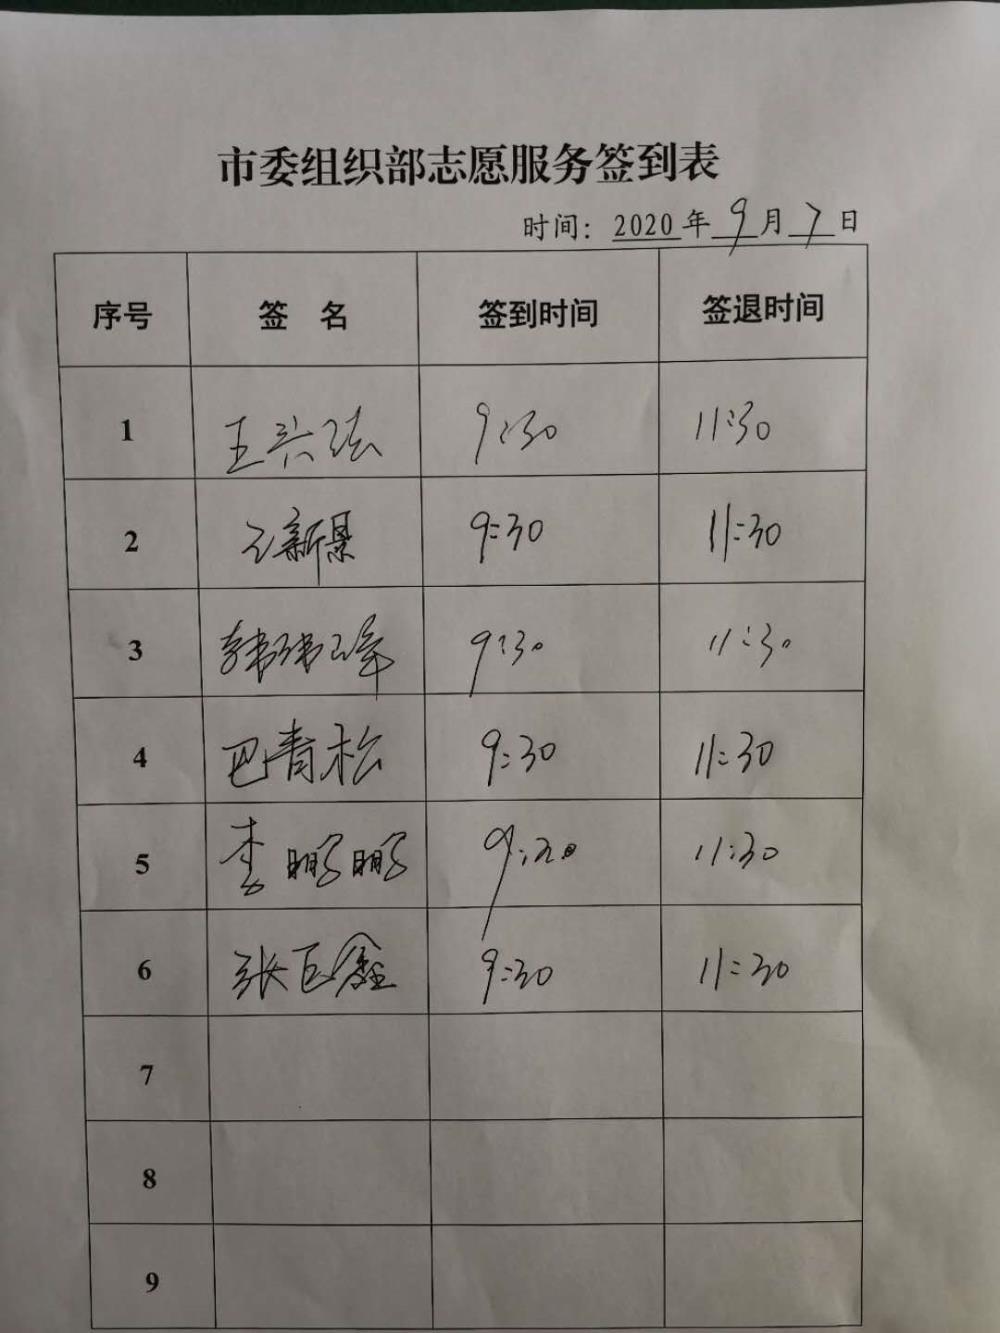 市委组织部志愿服务签到表
时间：2020年9月7日
序号 签名 签到时间 签退时间
1 王兴 9:30 11:30
2 王新景 9:30 11:30
3 9:30 11:30
4 巴青松 9:30 11:30
5 李鹏鹏 9:30 11:30
6 张巨鑫 9:30 11:30
7
8
9